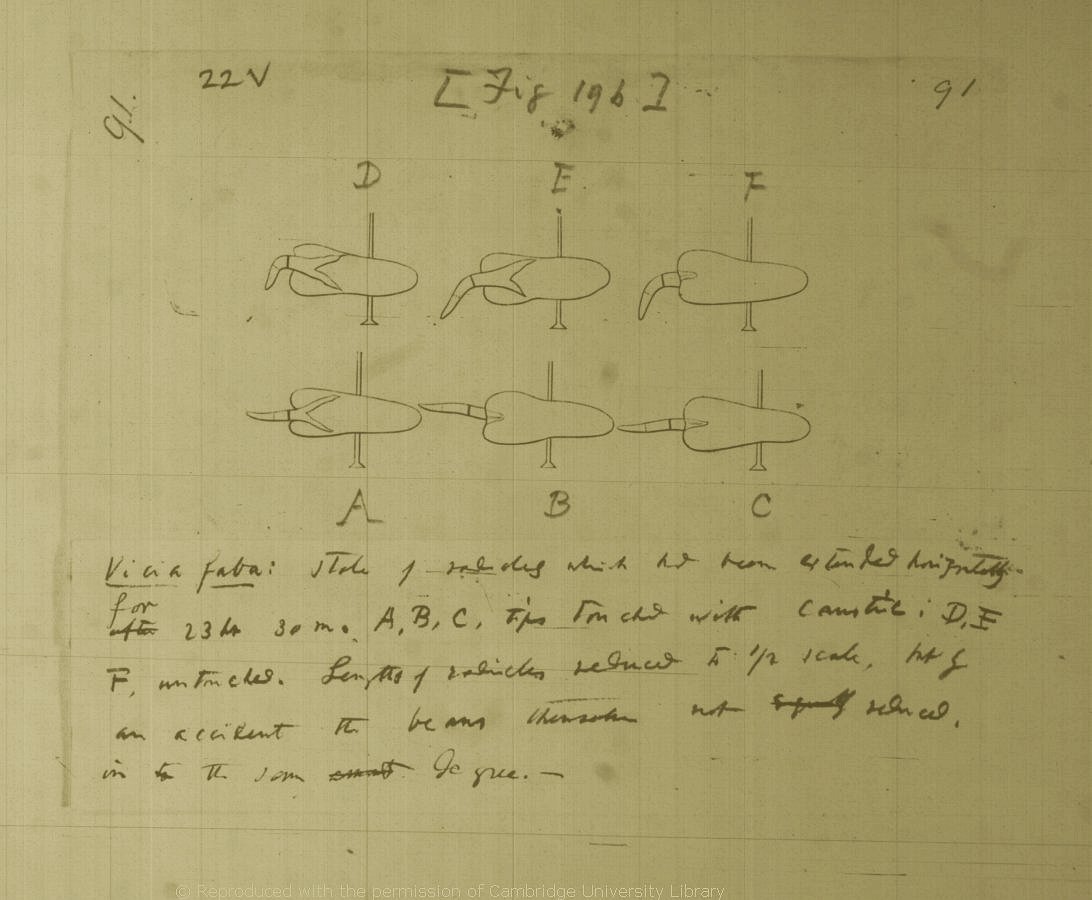 22V [Fig 196] 91
91.
D E F
A B C
Vicia faba: state of radicles which had been extended horizontally
for
after 23 hr 30 m. A, B, C, tips touched with caustic; D, E
F, untouched. Lengths of radicles reduced to 1/2 scale, but by
an accident the beans themselves not equally reduced.
in to the same amount degree.—
© Reproduced with the permission of Cambridge University Library